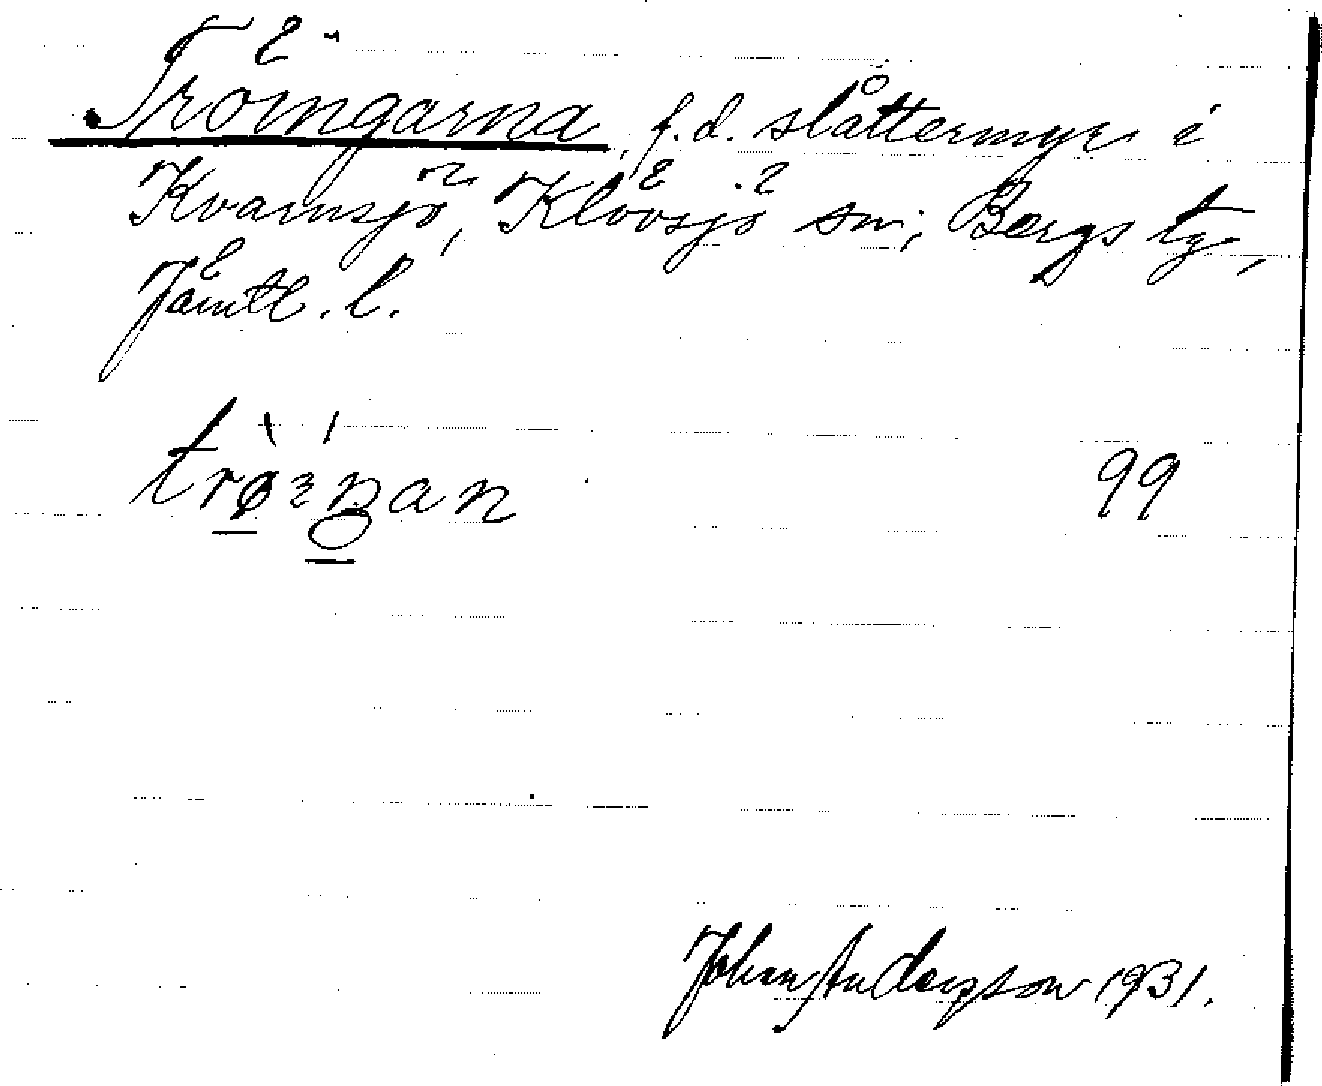 Tröingarna, f. d. slåttermyr i
Kvarnsjö, Klövsjö sn; Bergs tg,
Jämtl. l.
99
John Anderzson 1931.